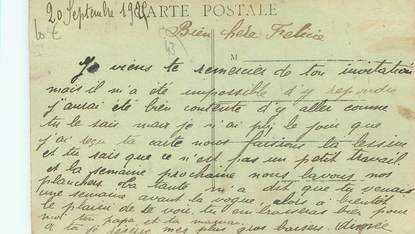 20 Septembre
CARTE POSTALE
Bien chère
M
Je viens te remercier de ton invitation
mais il m'a été impossible d'y repondre
j'aurai été bien contente d'y aller comme
tu le sais mais je n'ai pu le jour que
j'ai reçu ta carte nous faisions la lessive
et tu sais que ce n'est pas un petit travail
et la semaine prochaine nous lavons nos
planchers ta tante m'a dit que tu venais
une semaine avant la vogue, alors à bientôt
le plaisir de te voir, tu embrasseras bien pour
moi ton papa et ta maman
a toi je mes plus gros baisers